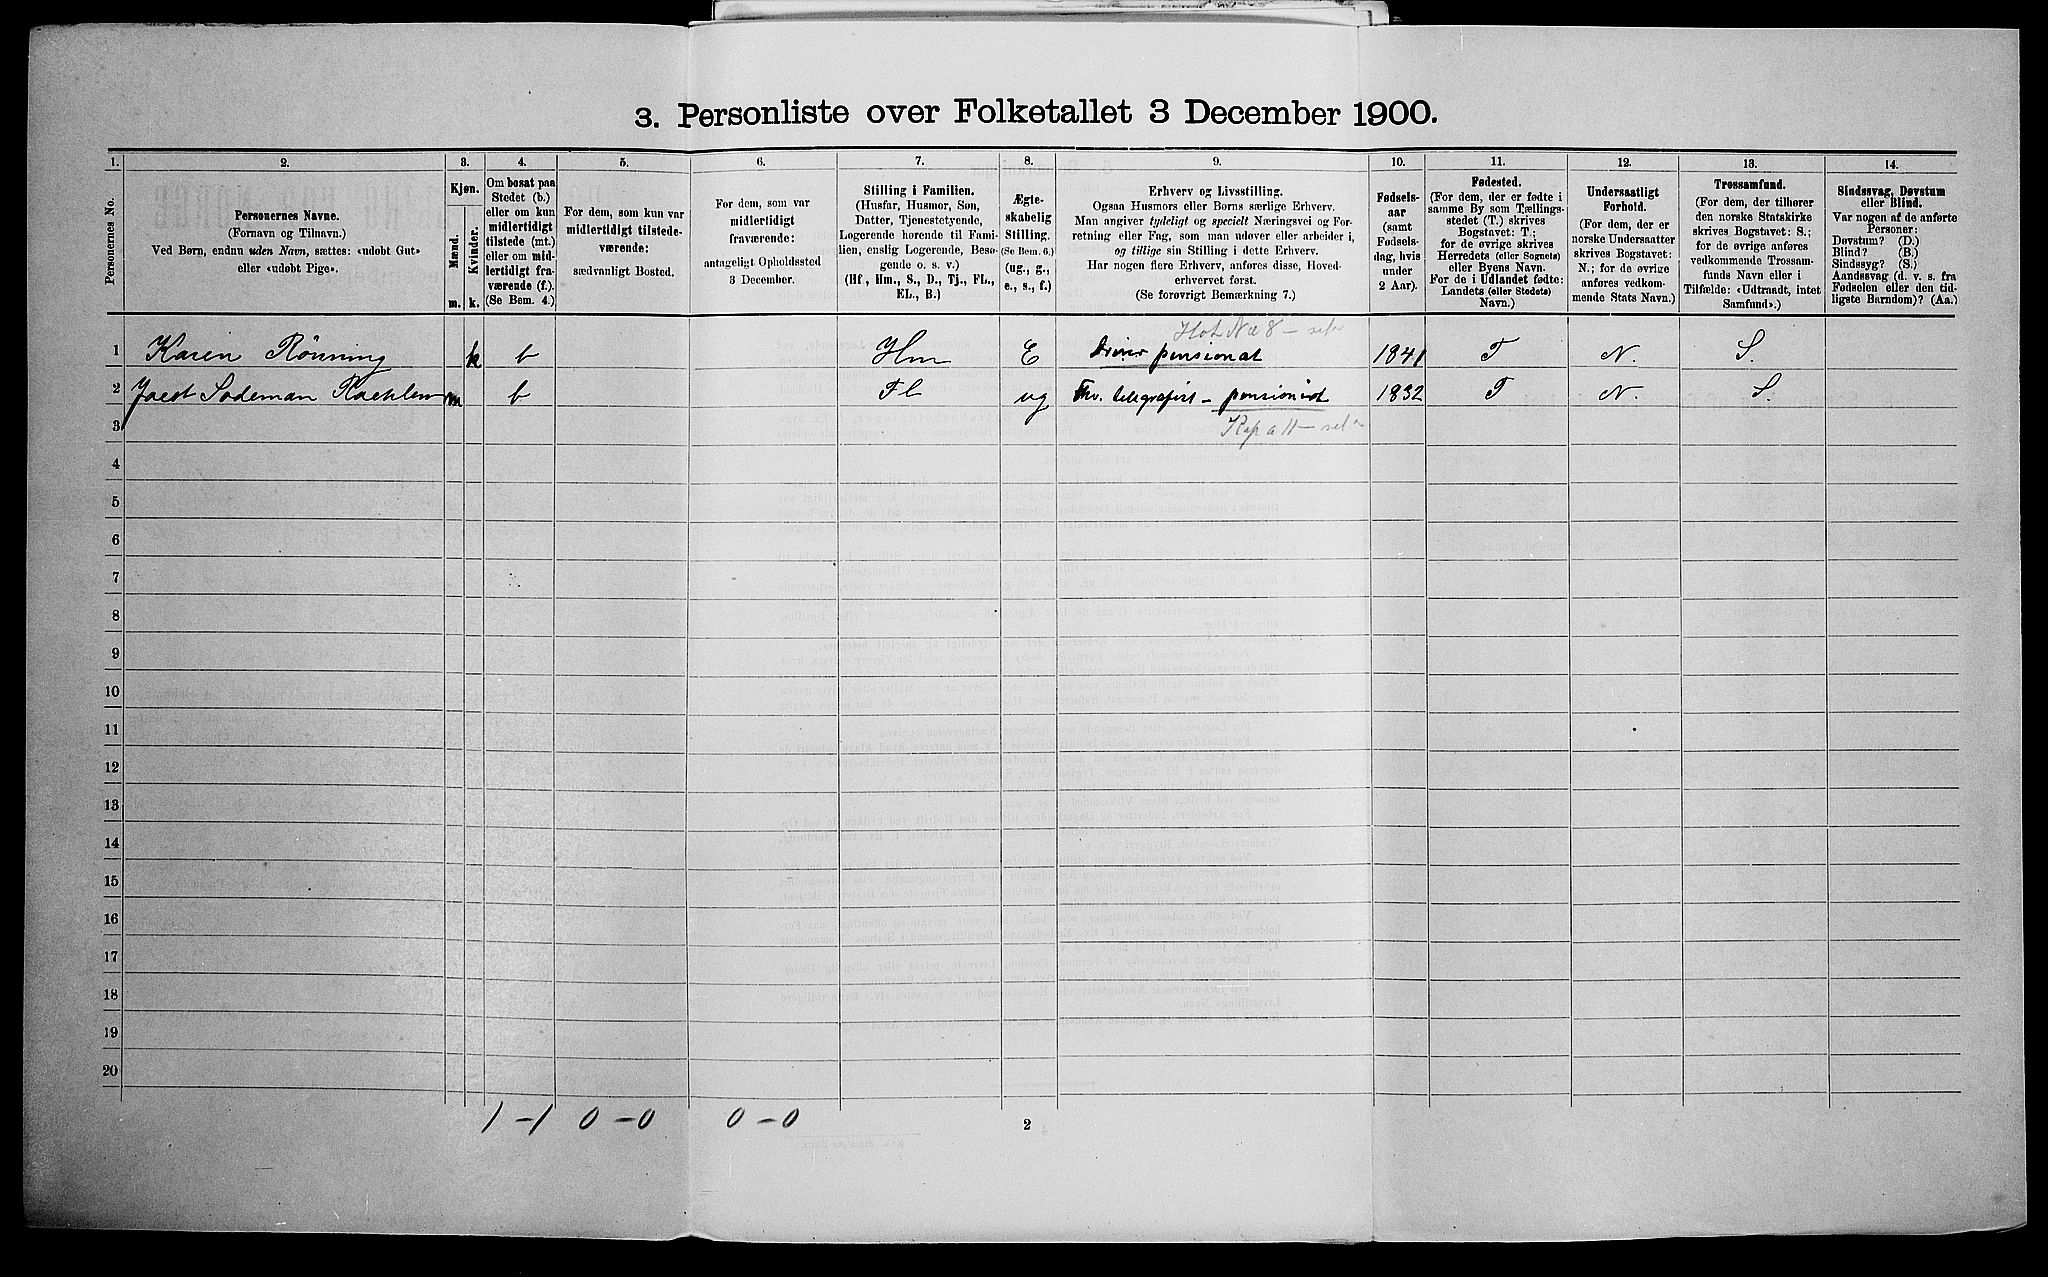 3. Personliste over Folketallet 3 December 1900.
1. 2. 3. 4. 5. 6. 7. 8. 9. 10. 11. 12. 13. 14.
Personernes No.
Personernes Navne.
(Fornavn og Tilnavn.)
Ved Børn, endnu uden Navn, sættes: «udøbt Gut»
eller «udøbt Pige».
Kjøn.
Mænd.
Kvinder.
m. k.
Om bosat paa
Stedet (b.)
eller om kun
midlertidigt
tilstede (mt.)
eller om mid-
lertidigt fra-
værende (f.).
(Se Bem. 4.)
For dem, som kun var
midlertidigt tilstede-
værende:
sædvanligt Bosted.
For dem, som var
midlertidigt
fraværende:
antageligt Opholdssted
3 December.
Stilling i Familien.
(Husfar, Husmor, Søn,
Datter, Tjenestetyende,
Logerende hørende til Fami-
lien, enslig Logerende, Besø-
gende o. s. v.)
(Hf., Hm., S., D., Tj., FL.,
EL., B.)
Ægte-
skabelig
Stilling.
(Se Bem. 6.)
(ug., g.,
e., s., f.)
Erhverv og Livsstilling.
Ogsaa Husmors eller Børns særlige Erhverv.
Man angiver tydeligt og specielt Næringsvei og For-
retning eller Fag, som man udøver eller arbeider i,
og tillige sin Stilling i dette Erhverv.
Har nogen flere Erhverv, anføres disse, Hoved-
erhvervet først.
(Se forøvrigt Bemærkning 7.)
Fødsels-
aar
(samt
Fødsels-
dag, hvis
under
2 Aar).
Fødested.
(For dem, der er fødte i
samme By som Tællings-
stedet (T.) skrives
Bogstavet: T.;
for de øvrige skrives
Herredets (eller Sognets)
eller Byens Navn.
For de i Udlandet fødte:
Landets (eller Stedets)
Navn.)
Undersaatligt
Forhold.
(For dem, der er
norske Undersaatter
skrives Bogstavet:
N.; for de øvrige
anføres vedkom-
mende Stats Navn.)
Trossamfund.
(For dem, der tilhører
den norske Statskirke
skrives Bogstavet: S.;
for de øvrige anføres
vedkommende Trossam-
funds Navn eller i
Tilfælde: «Udtraadt, intet
Samfund».)
Sindssvag, Døvstum
eller Blind.
Var nogen af de anførte
Personer:
Døvstum? (D.)
Blind? (B.)
Sindssyg? (S.)
Aandssvag (d. v. s. fra
Fødselen eller den tid-
ligste Barndom)? (Aa.)
Hot No 8 – self
1 Karen Rönning k b Hm E Driver pensionat 1841 T N. S.
2 Jacob Sodeman m b Fl ug Fhv. telegrafist – pensionist 1832 T N. S.
Kap a 11 – self
3
4
5
6
7
8
9
10
11
12
13
14
15
16
17
18
19
20
1–1 0–0 0–0
2